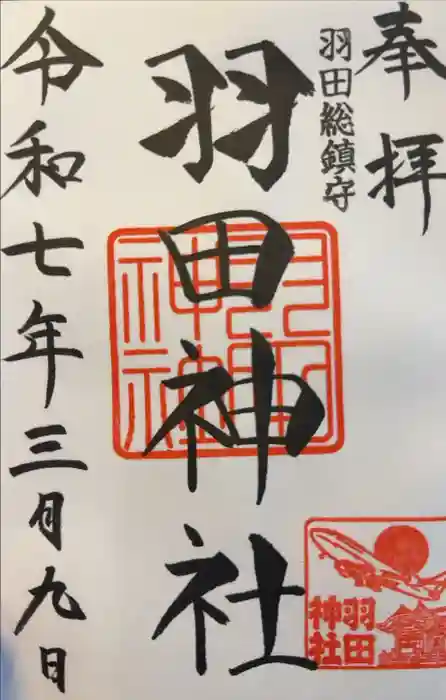 奉拝
羽田総鎮守
羽田神社
羽田神社
令和七年三月九日
羽田
神社